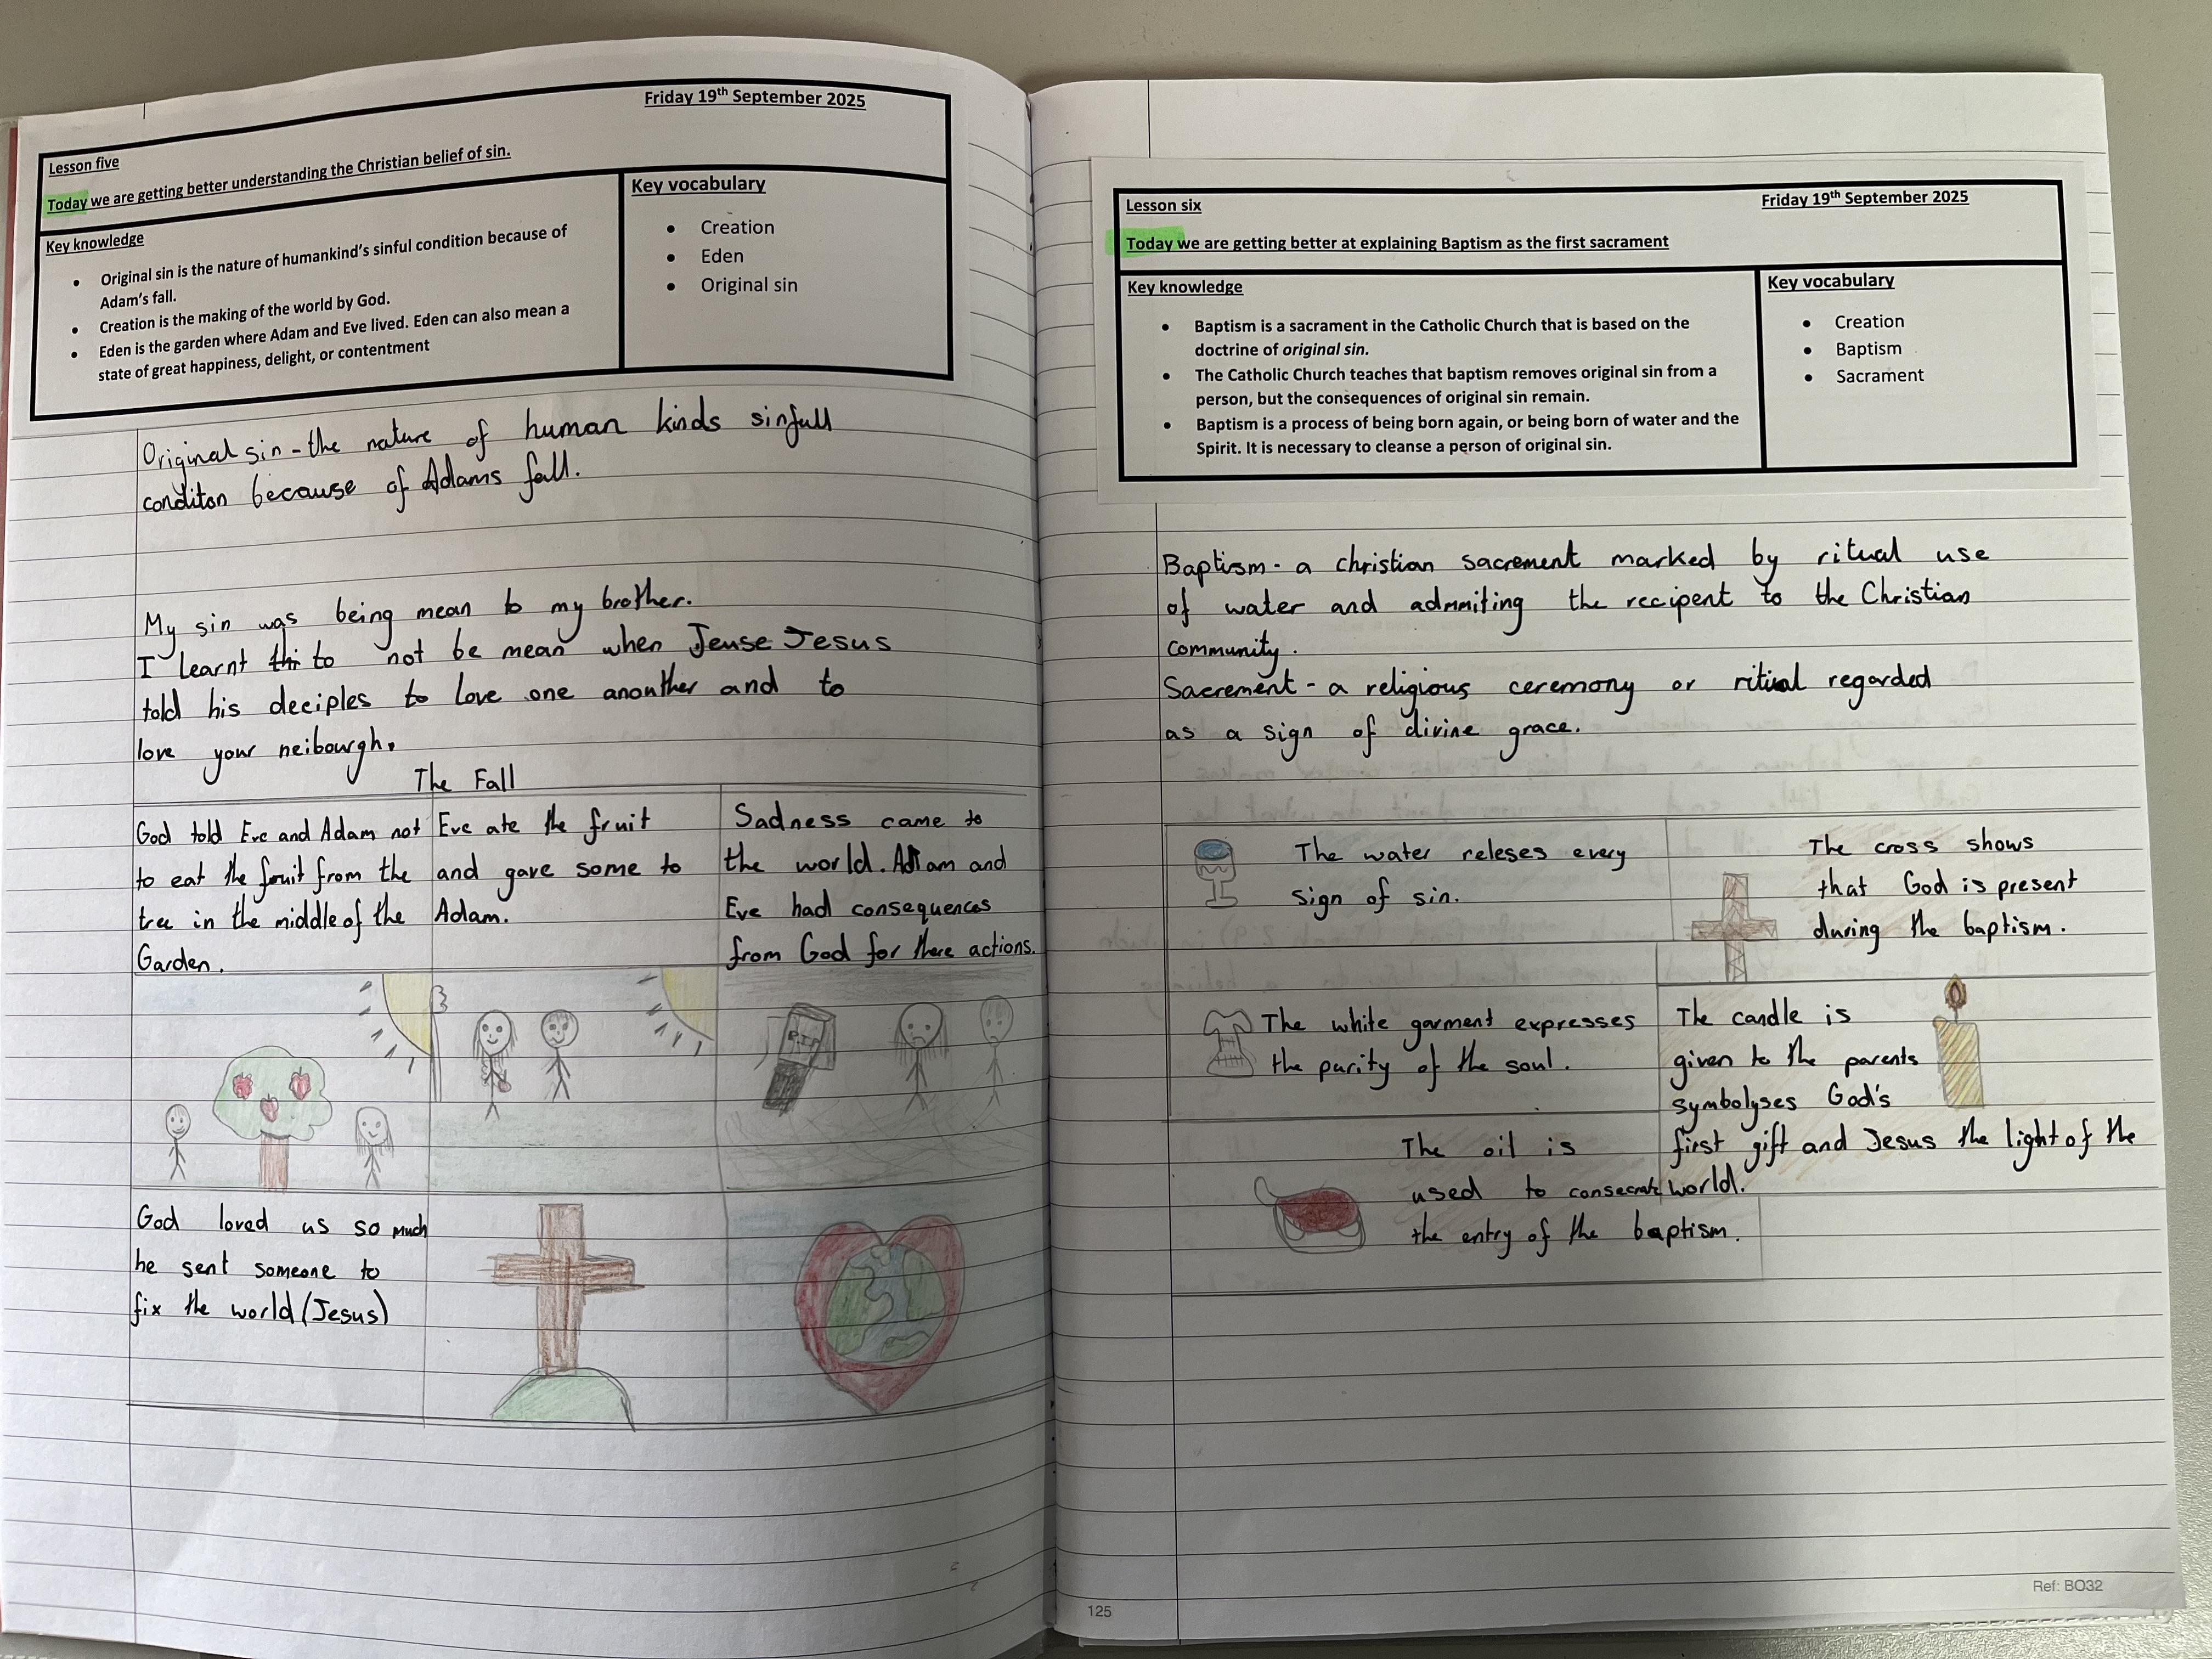 Friday 19th September 2025
Lesson five
Today we are getting better understanding the Christian belief of sin.
Key knowledge
• Original sin is the nature of humankind's sinful condition because of
Adam's fall.
• Creation is the making of the world by God.
• Eden is the garden where Adam and Eve lived. Eden can also mean a
state of great happiness, delight, or contentment
Key vocabulary
• Creation
• Eden
• Original sin
Original sin - the nature of human kinds sinfull
conditon because of Adams fall.
My sin was being mean to my brother.
I learnt thi to not be mean when Jeuse Jesus
told his deciples to love one anouther and to
love your neibourgh.
The Fall
God told Eve and Adam not
to eat the fruit from the
tree in the middle of the
Garden.
Eve ate the fruit
and gave some to
Adam.
Sadness came to
the world. Adam and
Eve had consequences
from God for there actions.
R.I.P
God loved us so much
he sent someone to
fix the world (Jesus)
Lesson six
Friday 19th September 2025
Today we are getting better at explaining Baptism as the first sacrament
Key knowledge
• Baptism is a sacrament in the Catholic Church that is based on the
doctrine of original sin.
• The Catholic Church teaches that baptism removes original sin from a
person, but the consequences of original sin remain.
• Baptism is a process of being born again, or being born of water and the
Spirit. It is necessary to cleanse a person of original sin.
Key vocabulary
• Creation
• Baptism
• Sacrament
Baptism - a christian sacrement marked by ritual use
of water and admmiting the recipent to the Christian
community.
Sacrement - a religious ceremony or ritual regarded
as a sign of divine grace.
The water releses every
sign of sin.
The cross shows
that God is present
during the baptism.
The white garment expresses
the purity of the soul.
The candle is
given to the parents
symbolyses God's
first gift and Jesus the light of the
world.
The oil is
used to consecrate
the entry of the baptism.
125
Ref: BO32